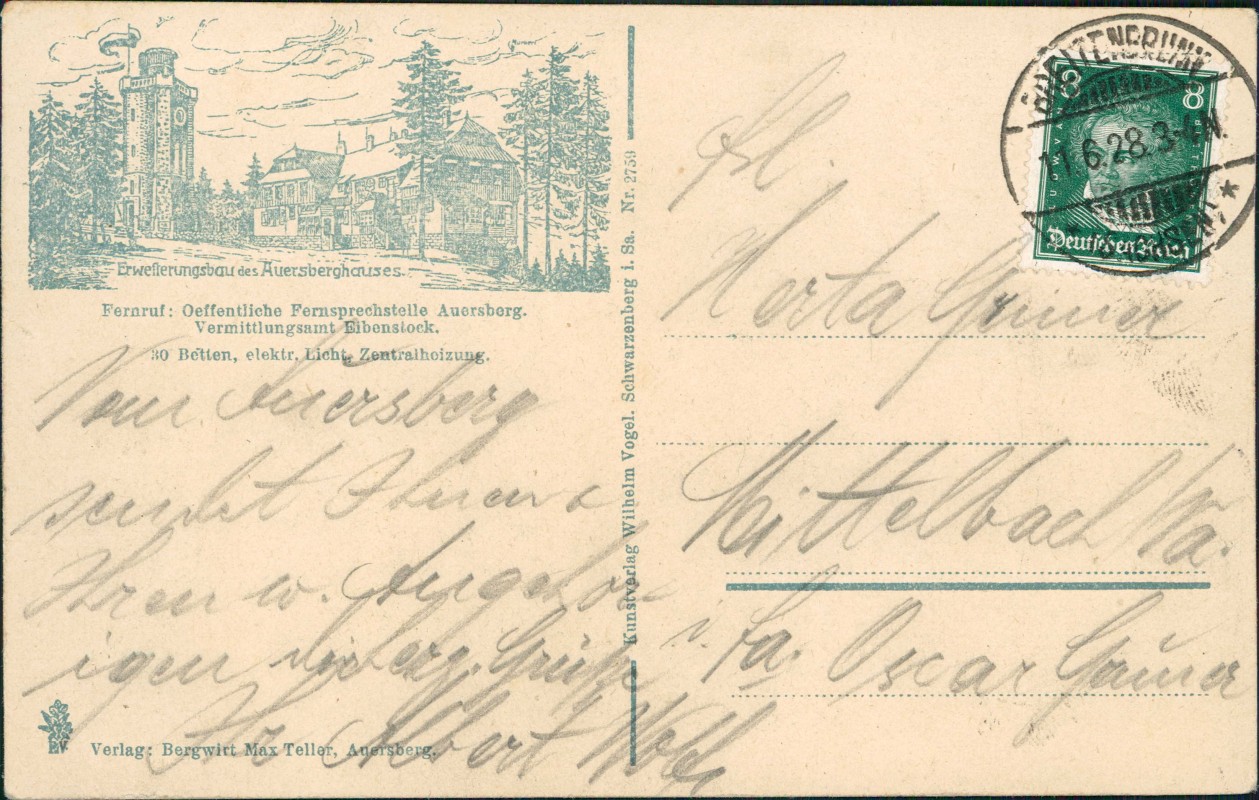 Erweiterungsbau des Auersberghauses.
Fernruf: Oeffentliche Fernsprechstelle Auersberg.
Vermittlungsamt Eibenstock.
30 Betten, elektr. Licht, Zentralheizung.
Vom Auersberg
sendet Ihnen &
Ihren w. Angehör
igen Grüße
Ihr Albert
B.V.
Verlag: Bergwirt Max Teller, Auersberg.
Kunstverlag Wilhelm Vogel. Schwarzenberg i. Sa. Nr. 2759
BREITENBRUNN
11.6.28. 3-4 N.
*
8 8
LUDW VAN
Deutsches Reich
Frl
Herta Grüner
Mittelbach
i. Fa. Oscar Grüner